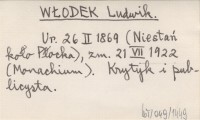 WŁODEK Ludwik.
Ur. 26 II 1869 (Niestań
koło Płocka), zm. 21 VII 1922
(Monachium). Krytyk i pub-
licysta.